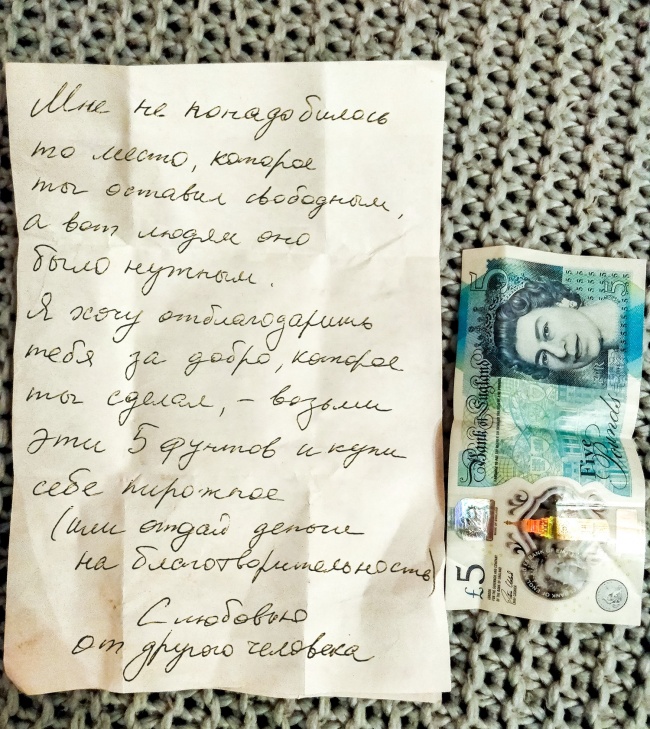 Мне не понадобилось
то место, которое
ты оставил свободным,
а вот людям оно
было нужным.
Я хочу отблагодарить
тебя за добро, которое
ты сделал, – возьми
эти 5 фунтов и купи
себе пирожное
(или отдай деньги
на благотворительность)
С любовью
от другого человека
5
Bank of England
Five
Pounds
£5